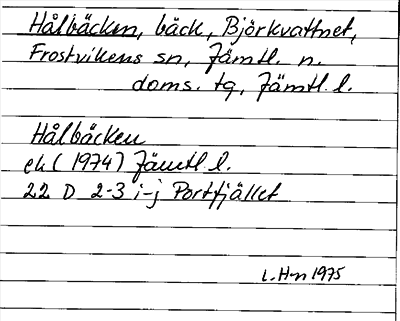 Hålbäcken, bäck, Björkvattnet,
Frostvikens sn, Jämtl. n.
doms. tg, Jämtl. l.
Hålbäcken
ek (1974) Jämtl l.
22 D 2-3 i-j Portfjället
L. H-n 1975